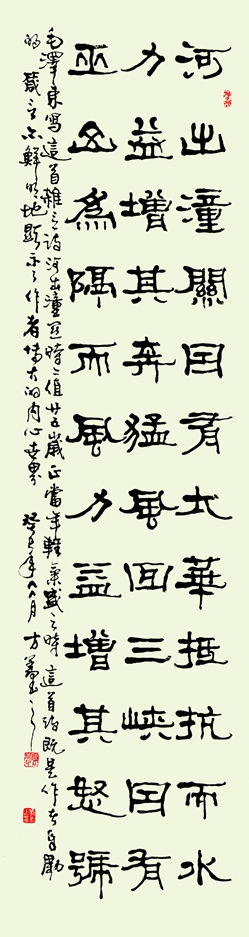 河出潼關因有太華抵抗而水
力益增其奔猛風回三峽因有
巫山為隔而風力益增其怒號
毛澤東寫這首雜言詩河出潼関時值廿五歲正當年輕氣盛之時這首詩既是作者自勵
的箴言亦鮮明地顯示了作者博大的内心世界 癸巳年八月方